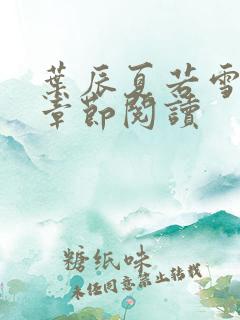 葉辰夏若雪
章節閱讀
糖纸味
未经同意禁止转载